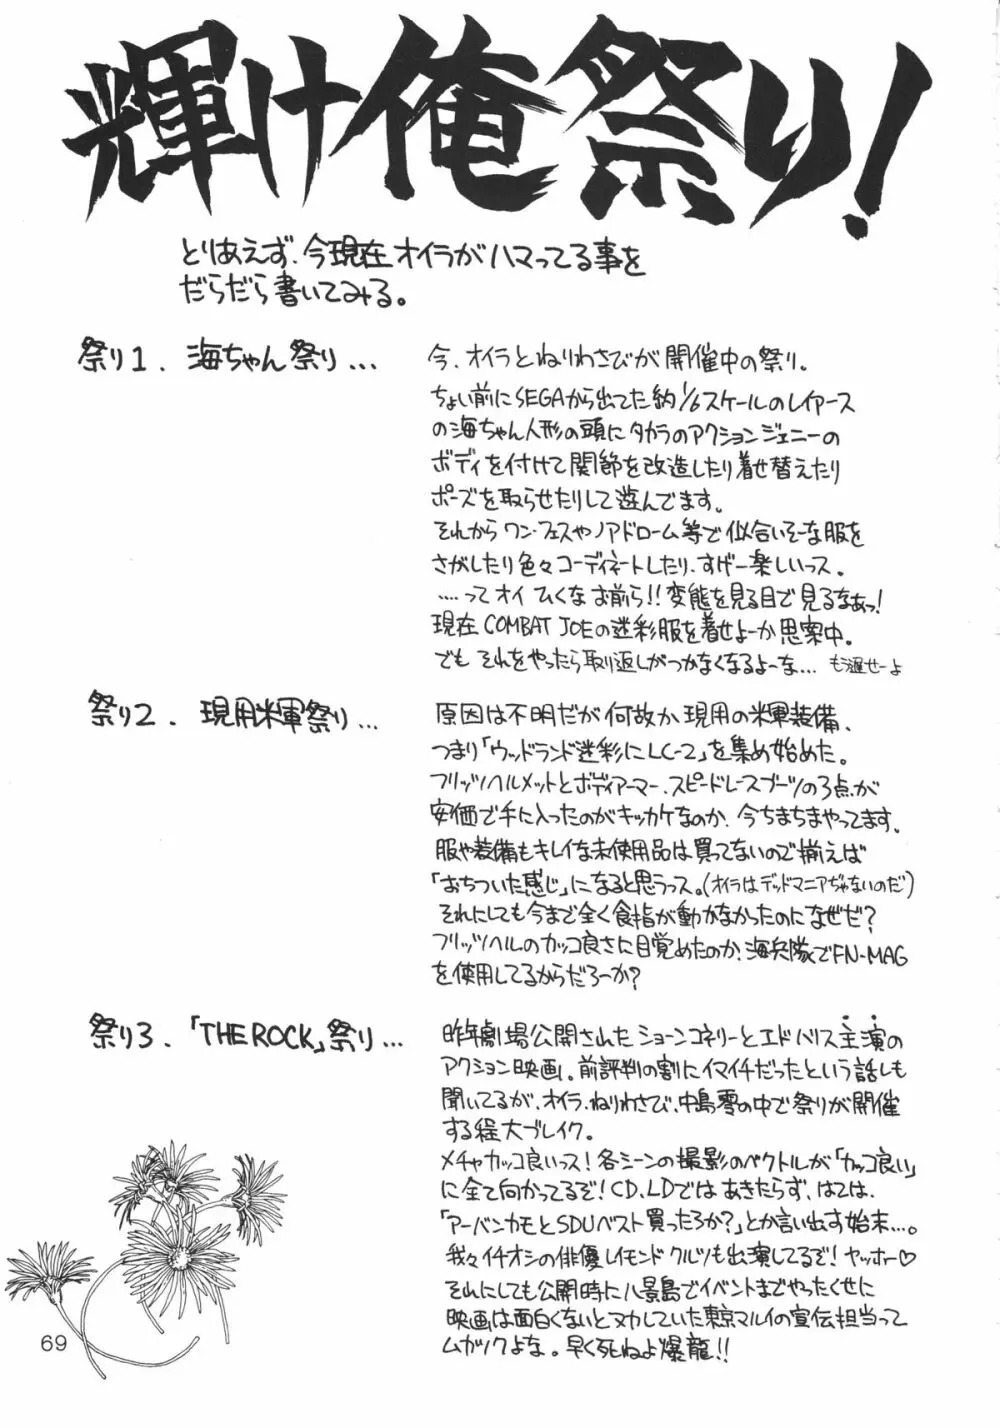 輝け俺祭り!
とりあえず、今現在オイラがハマってる事を
だらだら書いてみる。
祭り1. 海ちゃん祭り...
今、オイラとねりわさびが開催中の祭り。
ちょい前にSEGAから出てた約1/6スケールのレイアース
の海ちゃん人形の頭にタカラのアクションジェニーの
ボディを付けて関節を改造したり着せ替えたり
ポーズを取らせたりして遊んでます。
それからワン・フェスやノアドローム等で似合いそーな服を
さがしたり色々コーディネートしたり、すげー楽しいっス。
.....ってオイ ひくなお前ら!!変態を見る目で見るなぁっ!
現在COMBAT JOEの迷彩服を着せよーか思案中。
でもそれをやったら取り返しがつかなくなるよーな... もう遅せーよ
祭り2. 現用米軍祭り...
原因は不明だが何故か現用の米軍装備、
つまり「ウッドランド迷彩にLC-2」を集め始めた。
フリッツヘルメットとボディアーマー、スピードレースブーツの3点が
安価で手に入ったのがキッカケなのか、今ちまちまやってます。
服や装備もキレイな未使用品は買ってないので揃えば
「おちついた感じ」になると思うっス。(オイラはデッドマニアぢゃないのだ)
それにしても今まで全く食指が動かなかったのになぜだ?
フリッツヘルのカッコ良さに目覚めたのか、海兵隊でFN-MAG
を使用してるからだろーか?
祭り3.「THE ROCK」祭り...
昨年劇場公開されたショーンコネリーとエドハリス主演の
アクション映画。前評判の割にイマイチだったという話しも
聞いてるが、オイラ、ねりわさび、中島零の中で祭りが開催
する程大ブレイク。
メチャカッコ良いっス!各シーンの撮影のベクトルが「カッコ良い」
に全て向かってるぞ!CD、LDではあきたらず、はては、
「アーバンカモとSDUベスト買ったろか?」とか言い出す始末...。
我々イチオシの俳優レイモンドクルツも出演してるぞ!ヤッホー♡
それにしても公開時に八景島でイベントまでやったくせに
映画は面白くないとヌカしていた東京マルイの宣伝担当って
ムカツクよな。早く死ねよ爆龍!!
69